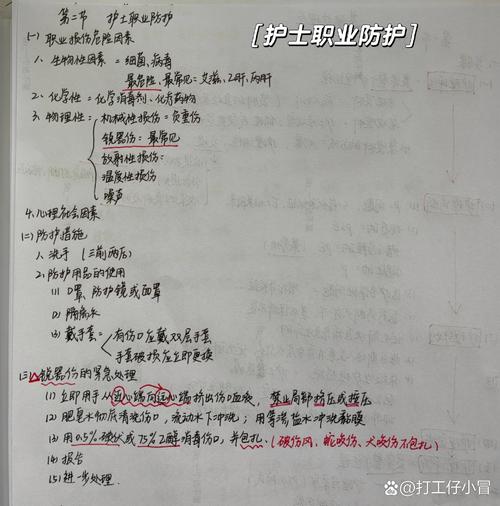 [护士职业防护]
第二节 护士职业防护
(一) 职业损伤危险因素
1. 生物性因素 = 细菌、病毒
最危险、最常见 = 艾滋、乙肝、丙肝
2. 化学性 = 化学消毒剂、化疗药物
3. 物理性: 机械性损伤 = 负重伤
锐器伤 = 最常见
放射性损伤:
温度性损伤
噪声
4. 心理社会因素
(二) 防护措施
1. 洗手 (三前两后)
2. 防护用品的使用
(1) 口罩、防护镜或面罩
(2) 隔离衣
(3) 戴手套 = 有伤口应戴双层手套
手套破损应立即更换
(三) △锐器伤的紧急处理
(1) 立即用手从近心端向远心端挤出伤口血液, 禁止局部挤压或按压
(2) 肥皂水彻底清洗伤口, 流动水下冲洗; 用等渗盐水冲洗黏膜
(3) 用0.5%碘伏或75%乙醇消毒伤口, 并包扎. (破伤风、蛇咬伤、犬咬伤不包扎)
(4) 报告
(5) 进一步处理.
@打工仔小冒